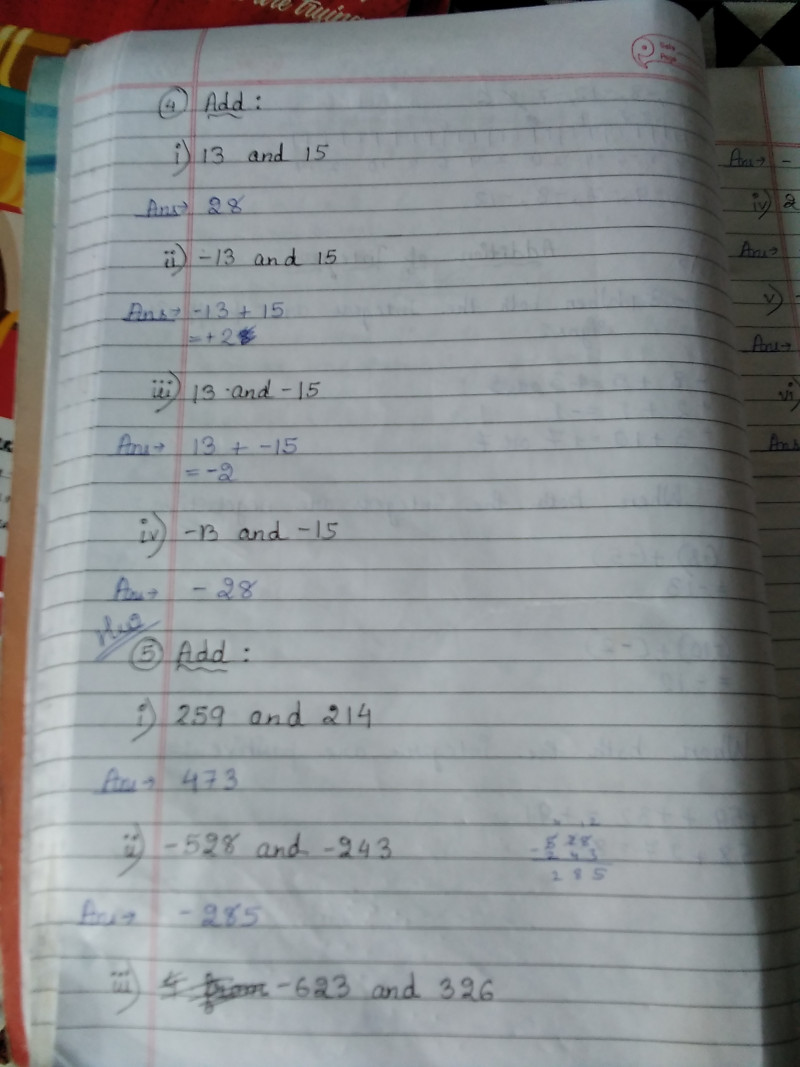 are Trying
Date
Page
④ Add :
i) 13 and 15
Ans→ 28
ii) -13 and 15
Ans→ -13 + 15
= +2
iii) 13 and -15
Ans→ 13 + -15
= -2
iv) -13 and -15
Ans→ - 28
H.W
⑤ Add :
i) 259 and 214
Ans→ 473
ii) -528 and -243
528
- 243
285
Ans→ - 285
iii) -623 and 326
Ans→ -
iv) 2
Ans→
v) -
Ans→
vi)
Ans